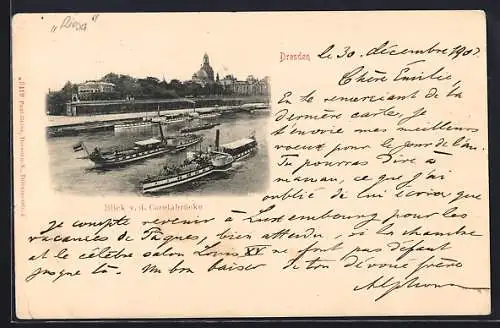 "Riesa"
Dresden
le 30. décembre 190?
Chère Emilie
En te remerciant de la
dernière carte, je
t'envoie mes meilleurs
voeux pour le jour de l'an.
Tu pourras dire à
maman, ce que j'ai
oublié de lui écrire que
Blick v. d. Carolabrücke
je compte revenir à Luxembourg pour les
vacances de Pâques, bien attendu, si la chambre
et le célèbre salon Louis XV ne font pas défaut
jusque là. Un bon baiser de ton dévoué frère
Alphonse